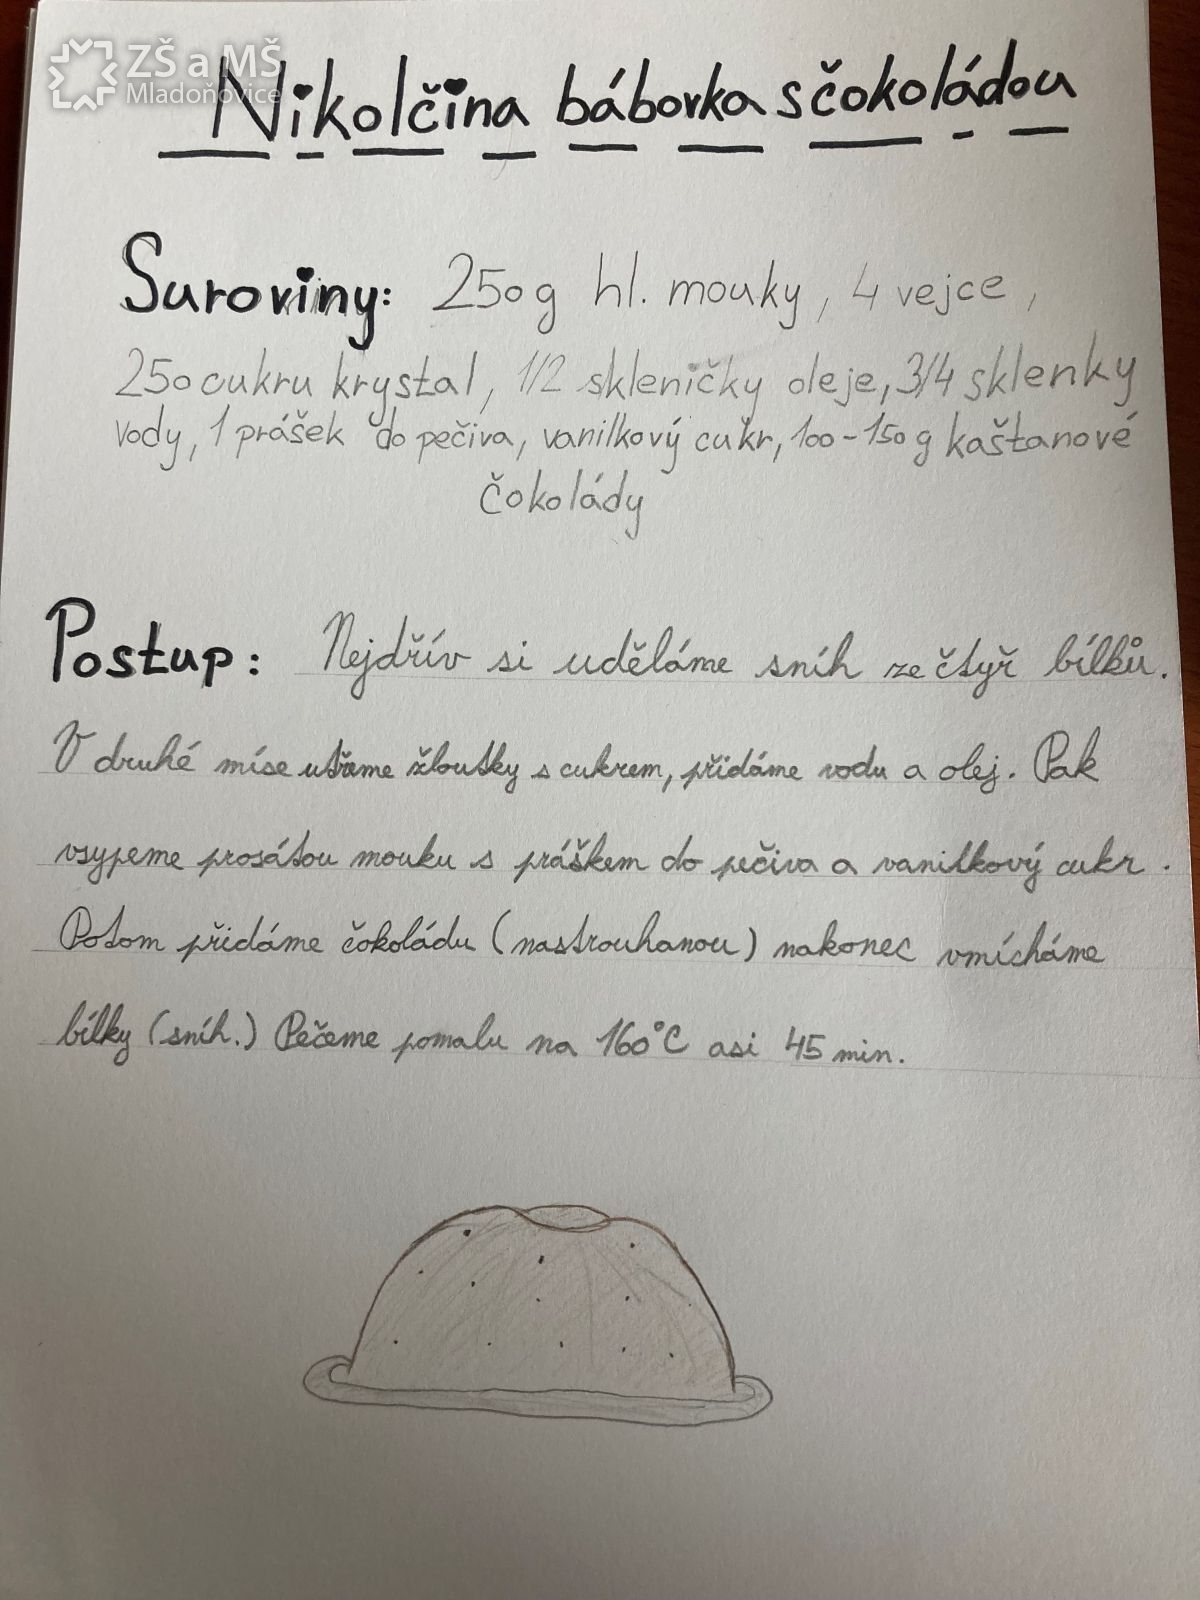 ZŠ a MŠ
Mladoňovice
Nikolčina báborka s čokoládou
Suroviny: 250 g hl. mouky, 4 vejce,
250 cukru krystal, 1/2 skleničky oleje, 3/4 sklenky
vody, 1 prášek do pečiva, vanilkový cukr, 100-150 g kaštanové
čokolády
Postup: Nejdřív si uděláme sníh ze čtyř bílků.
V druhé míse utřeme žloutky s cukrem, přidáme vodu a olej. Pak
vsypeme prosátou mouku s práškem do pečiva a vanilkový cukr.
Potom přidáme čokoládu (nastrouhanou) nakonec vmícháme
bílky (sníh.) Pečeme pomalu na 160°C asi 45 min.